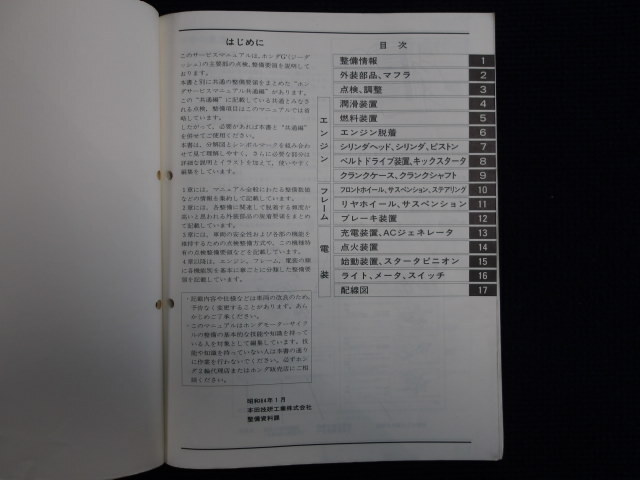 はじめに
このサービスマニュアルは、ホンダG'(ジーダ
ッシュ)の主要部の点検、整備要領を説明して
おります。
本書と別に共通の整備要領をまとめた"ホン
ダサービスマニュアル共通編"があります。
この"共通編"に記載している共通とみなさ
れる点検、整備項目はこのマニュアルでは省
略しています。
したがって、必要があれば本書と"共通編"
を併せてご使用ください。
本書は、分解図とシンボルマークを組み合わ
せて見て理解しやすく、さらに必要な部分は
詳細な説明とイラストを加えて、使いやすく
編集をしています。
1章には、マニュアル全般にわたる整備数値
などの情報を集約して記載しています。
2章には、各整備に関連して脱着する頻度が
高いと思われる外装部品の脱着要領をまとめ
て記載しています。
3章には、車両の安全性および各部の機能を
維持するための点検整備方式や、この機種特
有の点検整備要領などを記載しています。
4章以降は、エンジン、フレーム、電装の順
に各機能別を基本に章ごとに分類した整備要
領を記載しています。
・記載内容や仕様などは車両の改良のため、
予告なく変更することがあります。あら
かじめご了承ください。
・このマニュアルはホンダモーターサイク
ルの整備の基本的な技能や知識を持って
いる人を対象として編集しています。技
能や知識を持っていない人は本書の通り
に作業を行わないでください。必ずホン
ダ二輪代理店またはホンダ販売店にご相
談ください。
昭和64年1月
本田技研工業株式会社
整備資料課
目 次
整備情報 1
外装部品、マフラ 2
点検、調整 3
エンジン
潤滑装置 4
燃料装置 5
エンジン脱着 6
シリンダヘッド、シリンダ、ピストン 7
ベルトドライブ装置、キックスタータ 8
クランクケース、クランクシャフト 9
フレーム
フロントホイール、サスペンション、ステアリング 10
リヤホイール、サスペンション 11
ブレーキ装置 12
電装
充電装置、ACジェネレータ 13
点火装置 14
始動装置、スタータピニオン 15
ライト、メータ、スイッチ 16
配線図 17